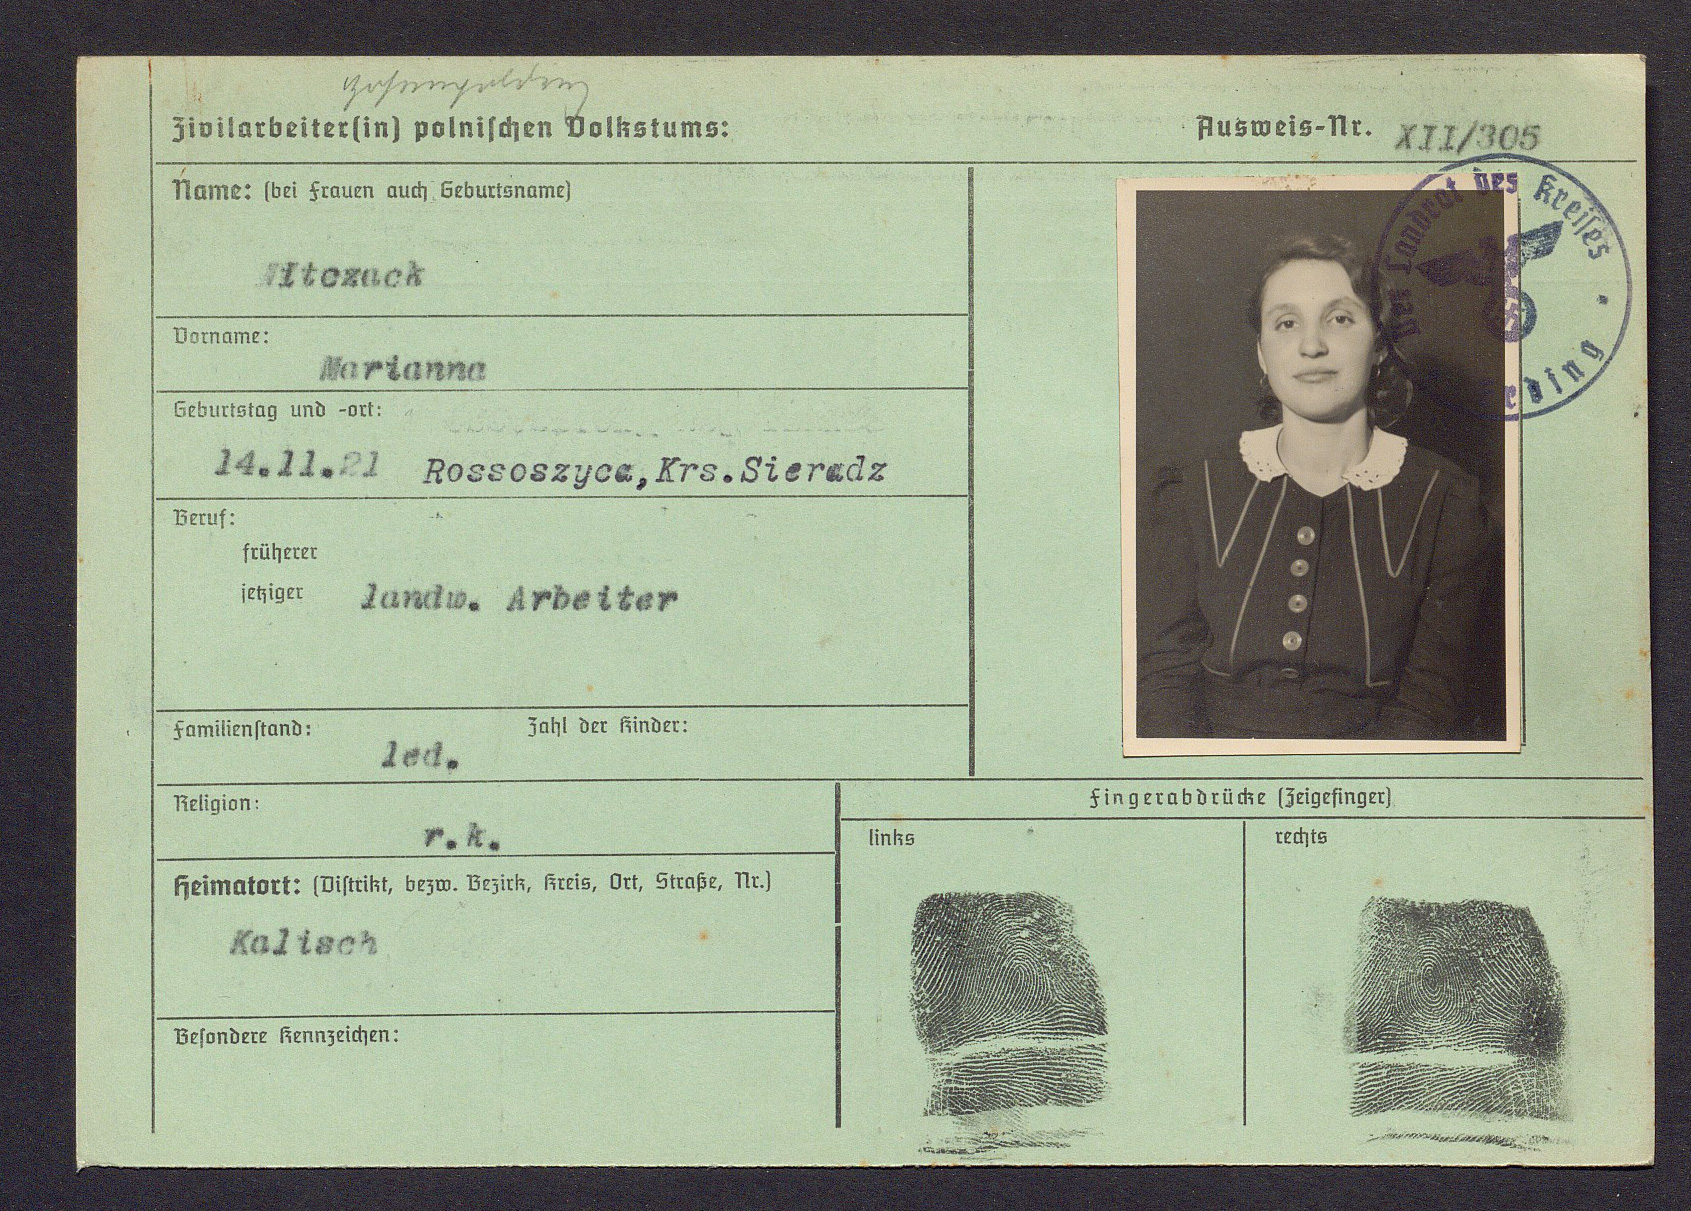 Zivilarbeiter(in) polnischen Volkstums:
Ausweis-Nr. XII/305
Name: (bei Frauen auch Geburtsname)
WItczack
Vorname:
Marianna
Geburtstag und -ort:
14.11.21 Rossoszyca,Krs.Sieradz
Beruf:
früherer
jetziger landw. Arbeiter
Familienstand: led. Zahl der Kinder:
Religion:
r.k.
Heimatort: (Distrikt, bezw. Bezirk, Kreis, Ort, Straße, Nr.)
Kalisch
Besondere Kennzeichen:
Fingerabdrücke (Zeigefinger)
links
rechts
Der Landrat des Kreises